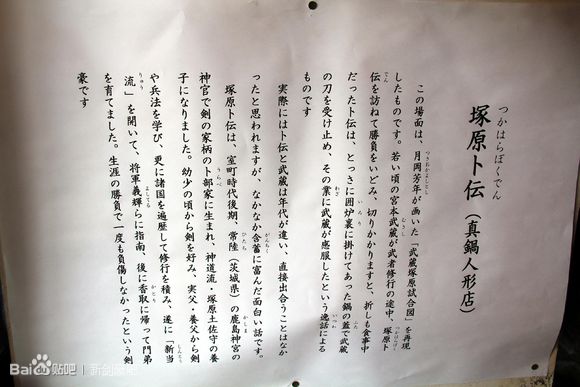 つかはらぼくでん
塚原卜伝(真鍋人形店)
この場面は、月岡芳年が画いた「武蔵塚原試合図」を再現
したものです。若い頃の宮本武蔵が武者修行の途中、塚原卜
伝を訪ねて勝負をいどみ、切りかかりますと、折しも食事中
だった卜伝は、とっさに囲炉裏に掛けてあった鍋の蓋で武蔵
の刀を受け止め、その業に武蔵が感服したという逸話による
ものです
実際には卜伝と武蔵は年代が違い、直接出合うことはなか
ったと思われますが、なかなか含蓄に富んだ面白い話です。
塚原卜伝は、室町時代後期、常陸(茨城県)の鹿島神宮の
神官で剣の家柄の卜部家に生まれ、神道流・塚原土佐守の養
子になりました。幼少の頃から剣を好み、実父・養父から剣
や兵法を学び、更に諸国を遍歴して修行を積み、遂に「新当
流」を開いて、将軍義輝らに指南、後に香取に帰って門弟
を育てました。生涯の勝負で一度も負傷しなかったという剣
豪です
Bai 贴吧